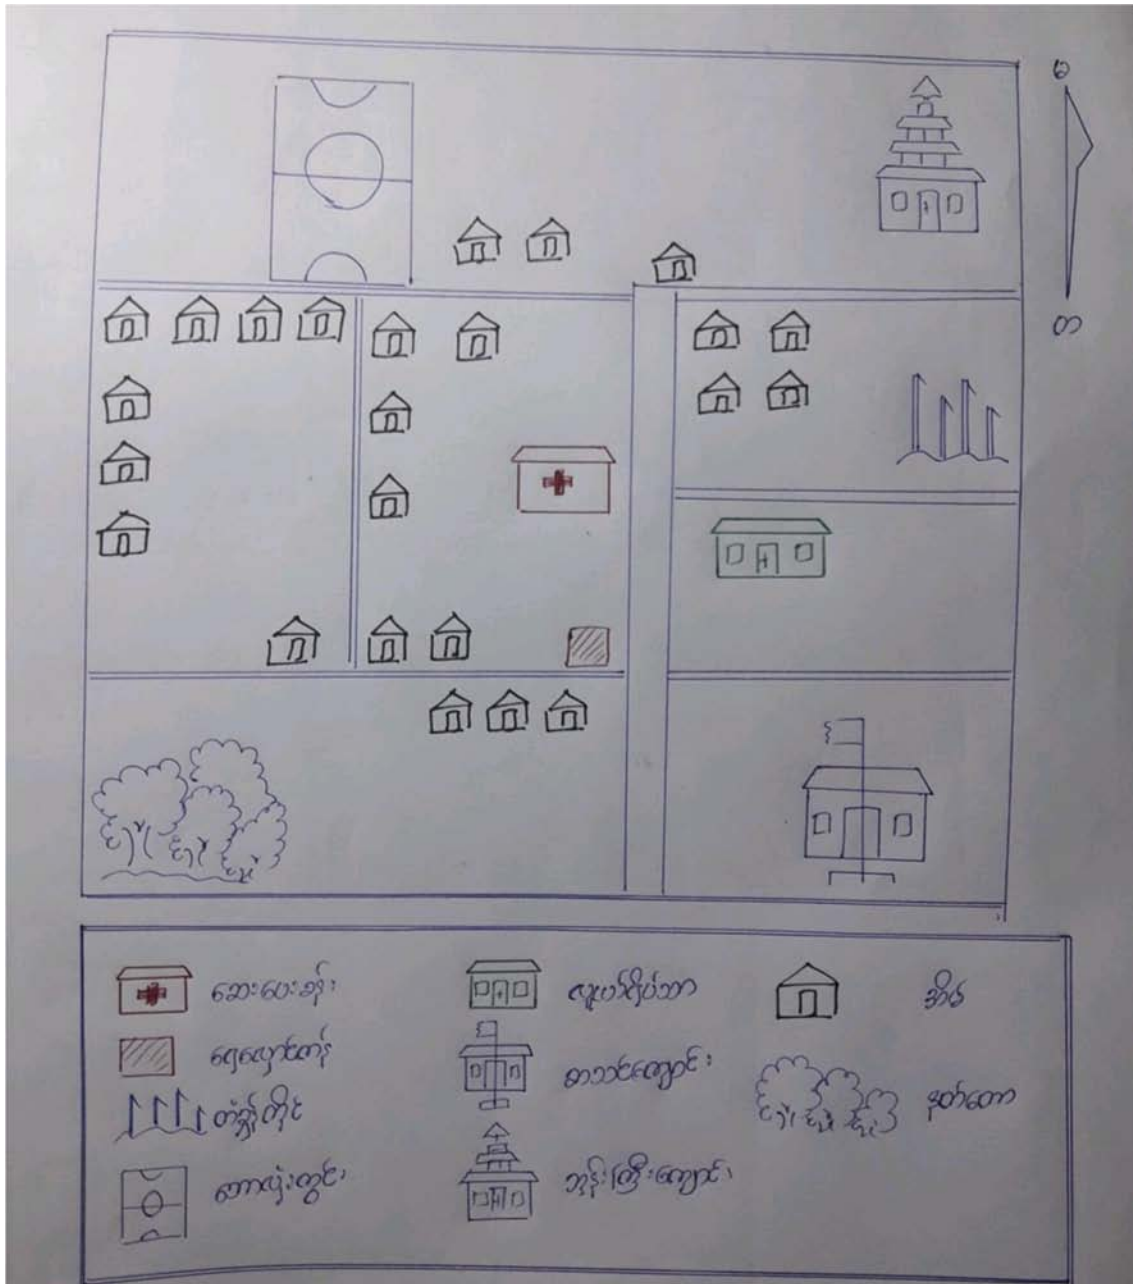 မ
တ
ဆေးပေးခန်း
ရေလှောင်ကန်
တံခွန်တိုင်
ဘောလုံးကွင်း
လူပျိုရိပ်သာ
စာသင်ကျောင်း
ဘုန်းကြီးကျောင်း
အိမ်
နတ်တော